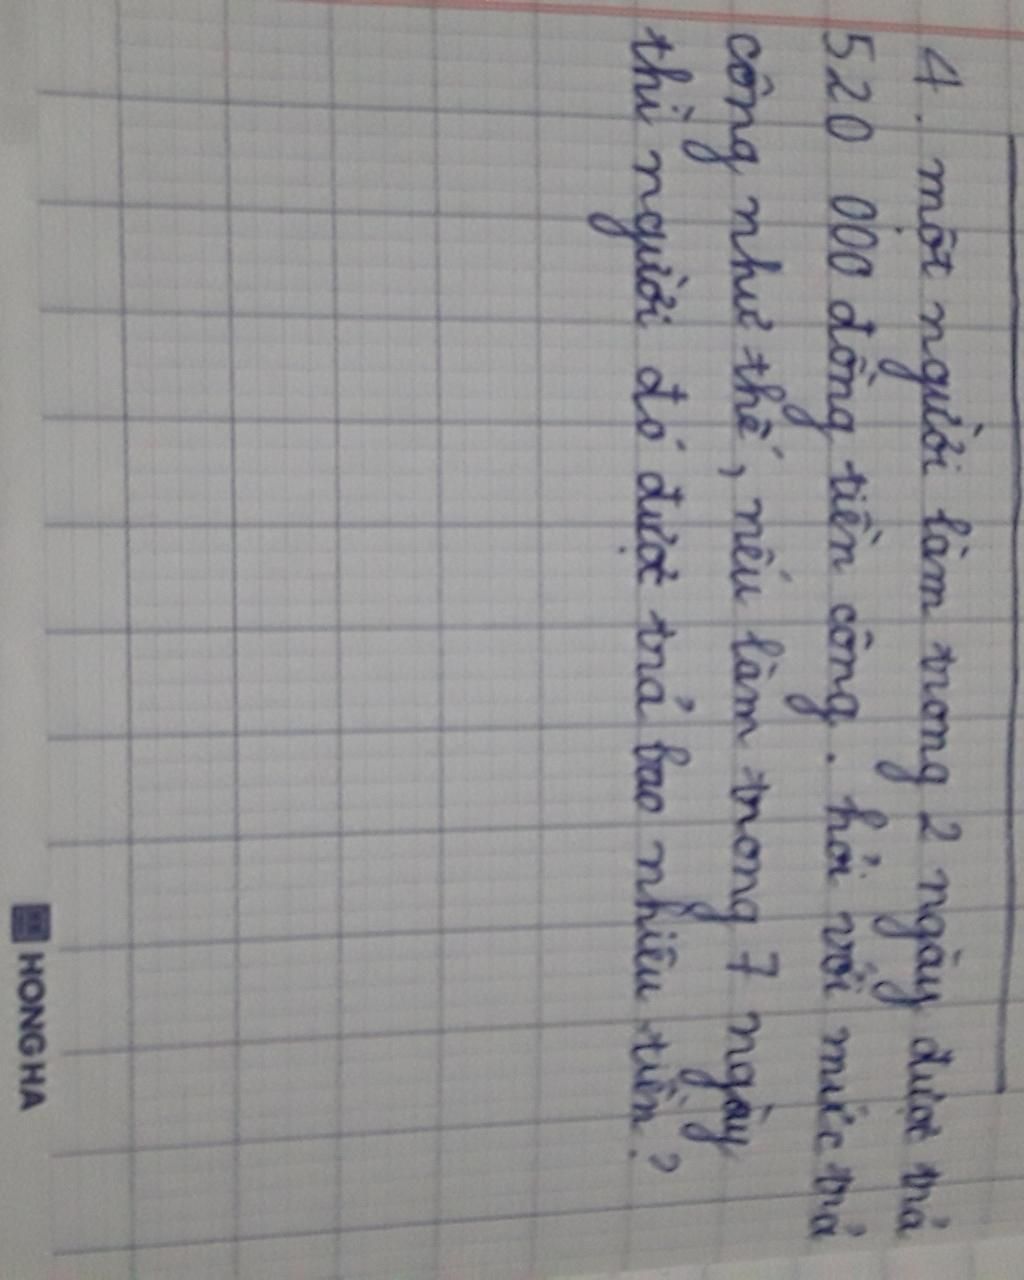 4. một người làm trong 2 ngày được trả
520 000 đồng tiền công. hỏi với mức trả
công như thế, nếu làm trong 7 ngày
thì người đó được trả bao nhiêu tiền?
HONG HA